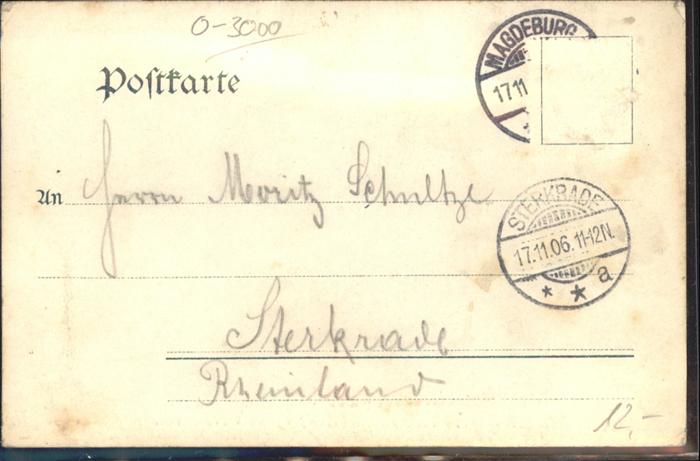 0-3000
MAGDEBURG
17.11
Postkarte
An Herrn Moritz Schultze
STERKRADE
17.11.06. 11-12N.
* * a
Sterkrade
Rheinland
12,-